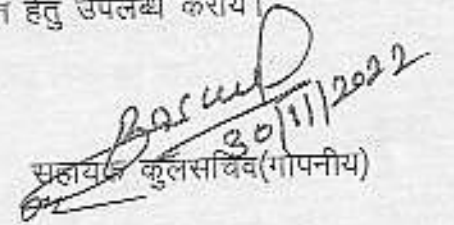 हेतु उपलब्ध करायें।
30/11/2022
सहायक कुलसचिव(गोपनीय)